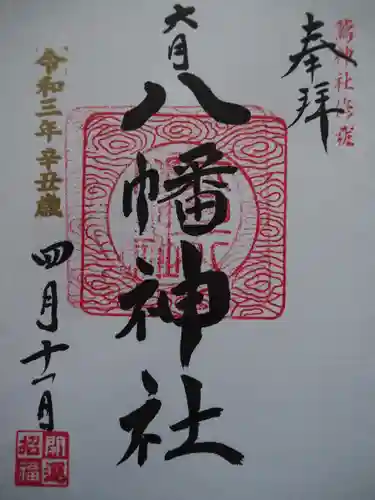 奉拝
六月
八幡神社
令和三年辛丑歳
四月十一日
開運
招福